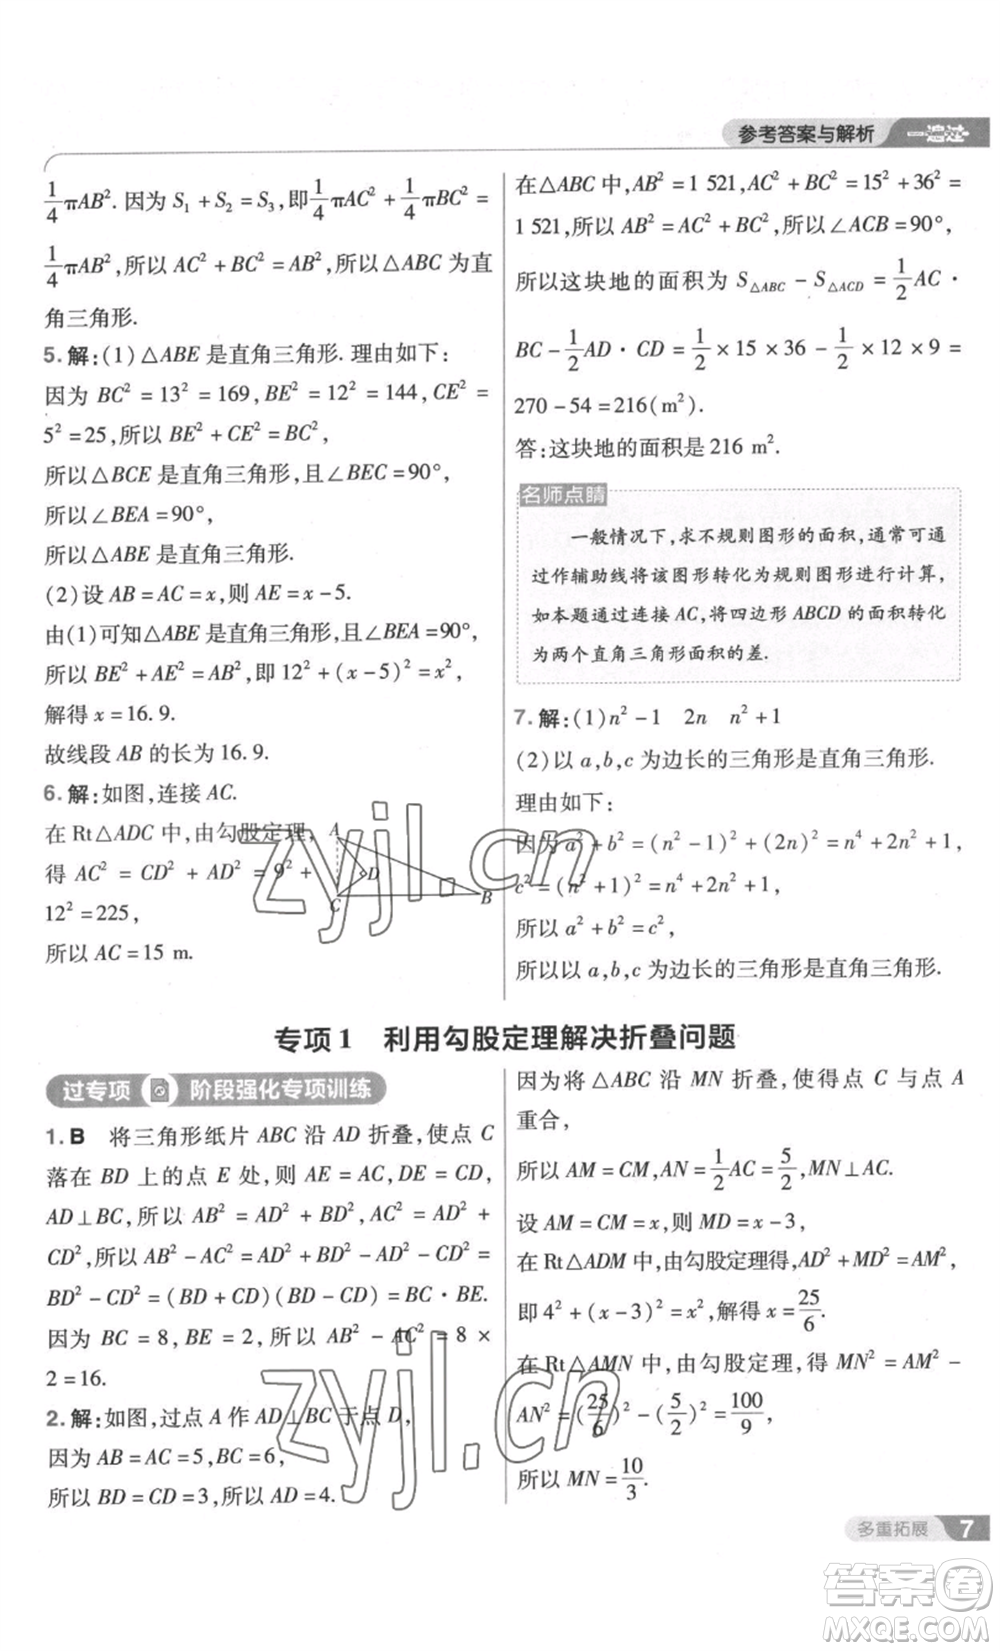 参考答案与解析 一遍过
1/4 πAB². 因为 S₁ + S₂ = S₃, 即 1/4 πAC² + 1/4 πBC² =
1/4 πAB², 所以 AC² + BC² = AB², 所以△ABC 为直
角三角形.
5. 解:(1)△ABE 是直角三角形. 理由如下:
因为 BC² = 13² = 169, BE² = 12² = 144, CE² =
5² = 25, 所以 BE² + CE² = BC²,
所以△BCE 是直角三角形, 且∠BEC = 90°,
所以∠BEA = 90°,
所以△ABE 是直角三角形.
(2)设 AB = AC = x, 则 AE = x - 5.
由(1)可知△ABE 是直角三角形, 且∠BEA = 90°,
所以 BE² + AE² = AB², 即 12² + (x - 5)² = x²,
解得 x = 16.9.
故线段 AB 的长为 16.9.
6. 解:如图, 连接 AC.
在 Rt△ADC 中, 由勾股定理,
得 AC² = CD² + AD² = 9² +
12² = 225,
所以 AC = 15 m.
A
D
C
B
在△ABC 中, AB² = 1 521, AC² + BC² = 15² + 36² =
1 521, 所以 AB² = AC² + BC², 所以∠ACB = 90°,
所以这块地的面积为 S△ABC - S△ACD = 1/2 AC ·
BC - 1/2 AD · CD = 1/2 × 15 × 36 - 1/2 × 12 × 9 =
270 - 54 = 216(m²).
答:这块地的面积是 216 m².
名师点睛
一般情况下, 求不规则图形的面积, 通常可通
过作辅助线将该图形转化为规则图形进行计算,
如本题通过连接 AC, 将四边形 ABCD 的面积转化
为两个直角三角形面积的差.
7. 解:(1)n² - 1 2n n² + 1
(2)以 a,b,c 为边长的三角形是直角三角形.
理由如下:
因为 a² + b² = (n² - 1)² + (2n)² = n⁴ + 2n² + 1,
c² = (n² + 1)² = n⁴ + 2n² + 1,
所以 a² + b² = c²,
所以以 a,b,c 为边长的三角形是直角三角形.
专项 1 利用勾股定理解决折叠问题
过专项 阶段强化专项训练
1. B 将三角形纸片 ABC 沿 AD 折叠, 使点 C
落在 BD 上的点 E 处, 则 AE = AC, DE = CD,
AD⊥BC, 所以 AB² = AD² + BD², AC² = AD² +
CD², 所以 AB² - AC² = AD² + BD² - AD² - CD² =
BD² - CD² = (BD + CD)(BD - CD) = BC · BE.
因为 BC = 8, BE = 2, 所以 AB² - AC² = 8 ×
2 = 16.
2. 解:如图, 过点 A 作 AD⊥BC 于点 D,
因为 AB = AC = 5, BC = 6,
所以 BD = CD = 3, 所以 AD = 4.
因为将△ABC 沿 MN 折叠, 使得点 C 与点 A
重合,
所以 AM = CM, AN = 1/2 AC = 5/2, MN⊥AC.
设 AM = CM = x, 则 MD = x - 3,
在 Rt△ADM 中, 由勾股定理得, AD² + MD² = AM²,
即 4² + (x - 3)² = x², 解得 x = 25/6.
在 Rt△AMN 中, 由勾股定理, 得 MN² = AM² -
AN² = (25/6)² - (5/2)² = 100/9,
所以 MN = 10/3.
多重拓展 7
zyjl.cn
zyjl.cn
答案卷
MXQE.COM